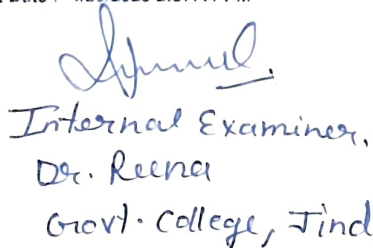 Internal Examiner,
Dr. Reena
Govt. College, Jind